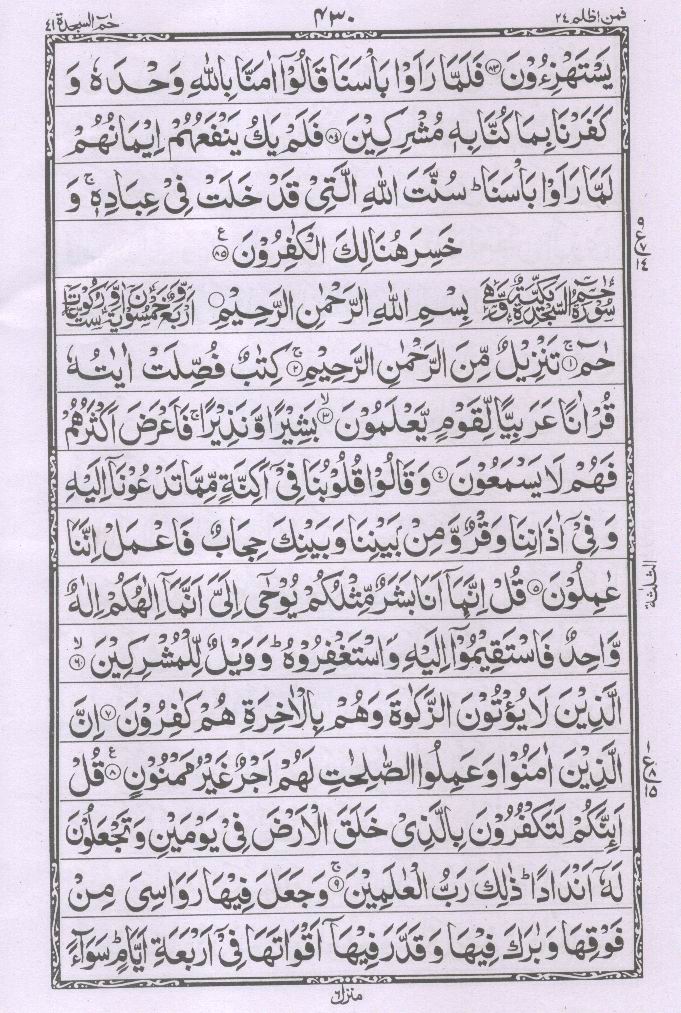 فمن اظلم ٢٤
٤٣٠
حٰمٓ السجدة ٤١
يَسْتَهْزِءُوْنَ ﴿٨٣﴾ فَلَمَّا رَاَوْا بَاْسَنَا قَالُوْٓا اٰمَنَّا بِاللّٰهِ وَحْدَهٗ وَ
كَفَرْنَا بِمَا كُنَّا بِهٖ مُشْرِكِيْنَ ﴿٨٤﴾ فَلَمْ يَكُ يَنْفَعُهُمْ اِيْمَانُهُمْ
لَمَّا رَاَوْا بَاْسَنَا ؕ سُنَّتَ اللّٰهِ الَّتِيْ قَدْ خَلَتْ فِيْ عِبَادِهٖ ۚ وَ
خَسِرَ هُنَالِكَ الْكٰفِرُوْنَ ﴿٨٥﴾ ع
سُوْرَةُ حٰمٓ السَّجْدَةِ مَكِّيَّةٌ وَّهِيَ بِسْمِ اللّٰهِ الرَّحْمٰنِ الرَّحِيْمِ اَرْبَعٌ وَّخَمْسُوْنَ اٰيَةً وَّسِتُّ رُكُوْعَاتٍ
حٰمٓ ۚ ﴿١﴾ تَنْزِيْلٌ مِّنَ الرَّحْمٰنِ الرَّحِيْمِ ۚ ﴿٢﴾ كِتٰبٌ فُصِّلَتْ اٰيٰتُهٗ
قُرْاٰنًا عَرَبِيًّا لِّقَوْمٍ يَّعْلَمُوْنَ ۙ ﴿٣﴾ بَشِيْرًا وَّنَذِيْرًا ۚ فَاَعْرَضَ اَكْثَرُهُمْ
فَهُمْ لَا يَسْمَعُوْنَ ﴿٤﴾ وَقَالُوْا قُلُوْبُنَا فِيْٓ اَكِنَّةٍ مِّمَّا تَدْعُوْنَآ اِلَيْهِ
وَفِيْٓ اٰذَانِنَا وَقْرٌ وَّمِنْۢ بَيْنِنَا وَبَيْنِكَ حِجَابٌ فَاعْمَلْ اِنَّنَا
عٰمِلُوْنَ ﴿٥﴾ قُلْ اِنَّمَآ اَنَا بَشَرٌ مِّثْلُكُمْ يُوْحٰٓى اِلَيَّ اَنَّمَآ اِلٰهُكُمْ اِلٰهٌ
وَّاحِدٌ فَاسْتَقِيْمُوْٓا اِلَيْهِ وَاسْتَغْفِرُوْهُ ؕ وَوَيْلٌ لِّلْمُشْرِكِيْنَ ۙ ﴿٦﴾
الَّذِيْنَ لَا يُؤْتُوْنَ الزَّكٰوةَ وَهُمْ بِالْاٰخِرَةِ هُمْ كٰفِرُوْنَ ﴿٧﴾ اِنَّ
الَّذِيْنَ اٰمَنُوْا وَعَمِلُوا الصّٰلِحٰتِ لَهُمْ اَجْرٌ غَيْرُ مَمْنُوْنٍ ﴿٨﴾ ع قُلْ
اَئِنَّكُمْ لَتَكْفُرُوْنَ بِالَّذِيْ خَلَقَ الْاَرْضَ فِيْ يَوْمَيْنِ وَتَجْعَلُوْنَ
لَهٗٓ اَنْدَادًا ؕ ذٰلِكَ رَبُّ الْعٰلَمِيْنَ ۚ ﴿٩﴾ وَجَعَلَ فِيْهَا رَوَاسِيَ مِنْ
فَوْقِهَا وَبٰرَكَ فِيْهَا وَقَدَّرَ فِيْهَآ اَقْوَاتَهَا فِيْٓ اَرْبَعَةِ اَيَّامٍ ؕ سَوَآءً
الثلثة
منزل ٦